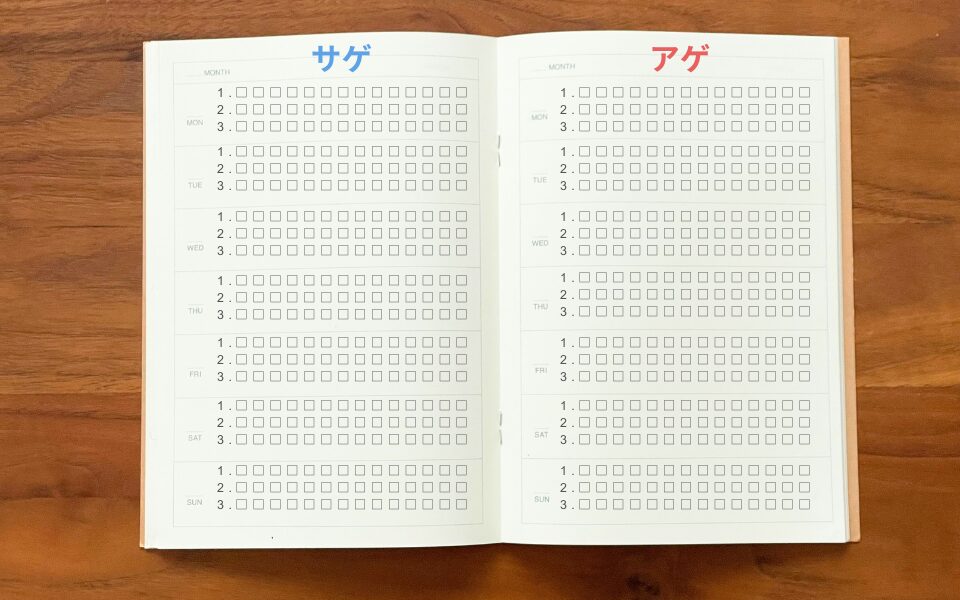 サゲ
MONTH
MON
1. □□□□□□□□□□□□□□
2. □□□□□□□□□□□□□□
3. □□□□□□□□□□□□□□
TUE
1. □□□□□□□□□□□□□□
2. □□□□□□□□□□□□□□
3. □□□□□□□□□□□□□□
WED
1. □□□□□□□□□□□□□□
2. □□□□□□□□□□□□□□
3. □□□□□□□□□□□□□□
THU
1. □□□□□□□□□□□□□□
2. □□□□□□□□□□□□□□
3. □□□□□□□□□□□□□□
FRI
1. □□□□□□□□□□□□□□
2. □□□□□□□□□□□□□□
3. □□□□□□□□□□□□□□
SAT
1. □□□□□□□□□□□□□□
2. □□□□□□□□□□□□□□
3. □□□□□□□□□□□□□□
SUN
1. □□□□□□□□□□□□□□
2. □□□□□□□□□□□□□□
3. □□□□□□□□□□□□□□
アゲ
MONTH
MON
1. □□□□□□□□□□□□□□
2. □□□□□□□□□□□□□□
3. □□□□□□□□□□□□□□
TUE
1. □□□□□□□□□□□□□□
2. □□□□□□□□□□□□□□
3. □□□□□□□□□□□□□□
WED
1. □□□□□□□□□□□□□□
2. □□□□□□□□□□□□□□
3. □□□□□□□□□□□□□□
THU
1. □□□□□□□□□□□□□□
2. □□□□□□□□□□□□□□
3. □□□□□□□□□□□□□□
FRI
1. □□□□□□□□□□□□□□
2. □□□□□□□□□□□□□□
3. □□□□□□□□□□□□□□
SAT
1. □□□□□□□□□□□□□□
2. □□□□□□□□□□□□□□
3. □□□□□□□□□□□□□□
SUN
1. □□□□□□□□□□□□□□
2. □□□□□□□□□□□□□□
3. □□□□□□□□□□□□□□